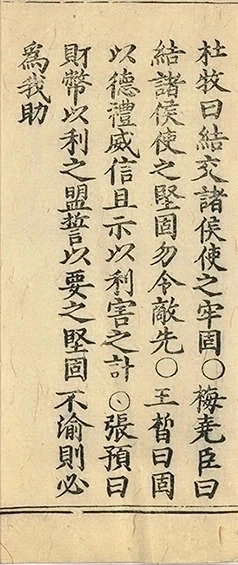 杜牧曰結交諸侯使之牢固○梅堯臣曰
結諸侯使之堅固勿令敵先○王晳曰固
以德禮威信且示以利害之計○張預曰
財幣以利之盟誓以要之堅固不渝則必
爲我助